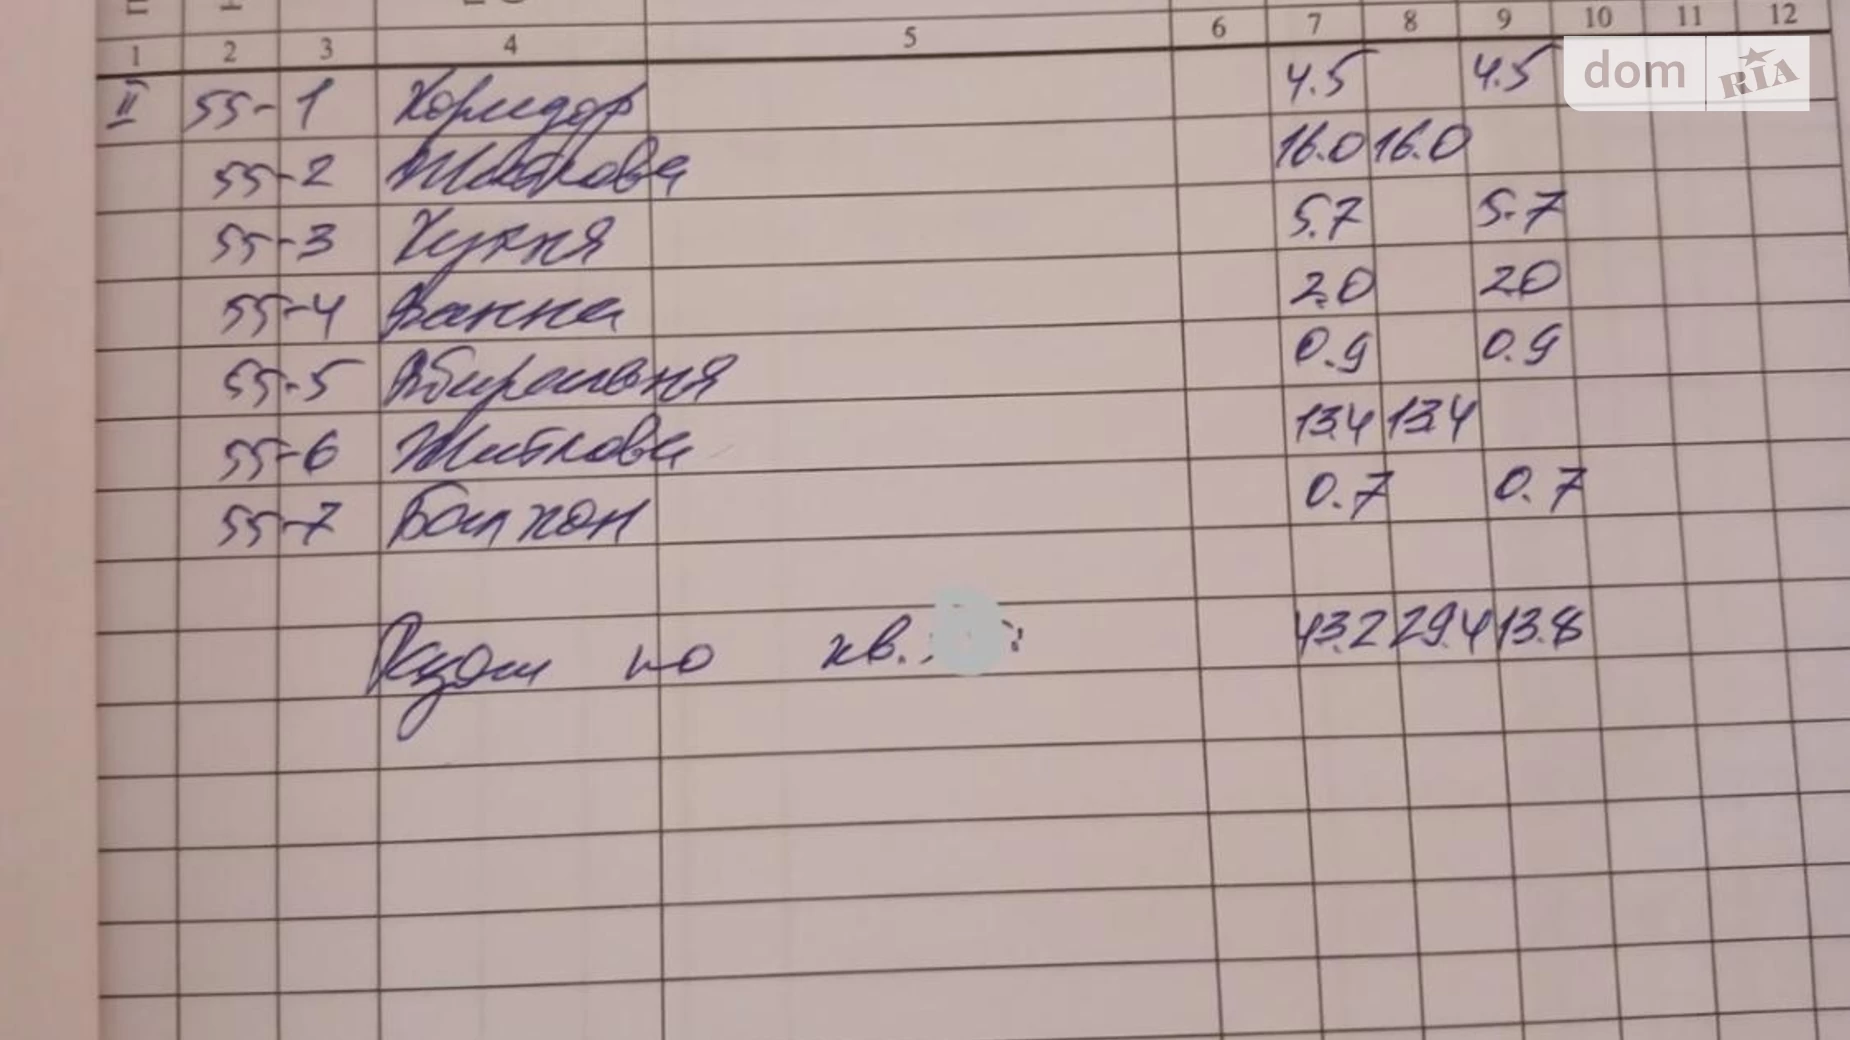 1 2 3 4 5 6 7 8 9 10 11 12
dom RIA
II 55-1 Коридор 4.5 4.5
55-2 Житлова 16.0 16.0
55-3 Кухня 5.7 5.7
55-4 Ванна 2.0 2.0
55-5 Вбиральня 0.9 0.9
55-6 Житлова 13.4 13.4
55-7 Балкон 0.7 0.7
Разом по кв. 43.2 29.4 13.8